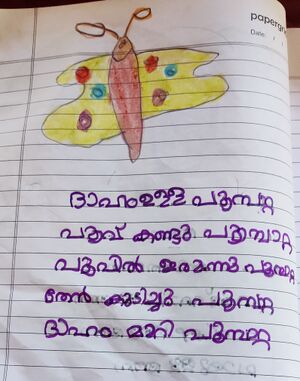 papergr
Date: / /
ദാഹംഉള്ള പൂമ്പാറ്റ
പൂവ് കണ്ടു പൂമ്പാറ്റ
പൂവിൽ ഇരുന്നു പൂമ്പാറ്റ
തേൻ കുടിച്ചു പൂമ്പാറ്റ
ദാഹം മാറി പൂമ്പാറ്റ